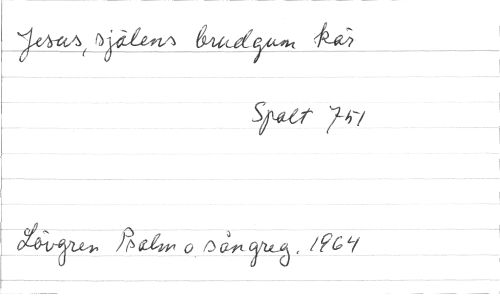 Jesus, själens brudgum kär
Spalt 751
Lövgren Psalm o. sångreg. 1964